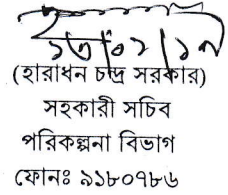 (হারাধন চন্দ্র সরকার)
সহকারী সচিব
পরিকল্পনা বিভাগ
ফোনঃ ৯১৮০৭৮৬